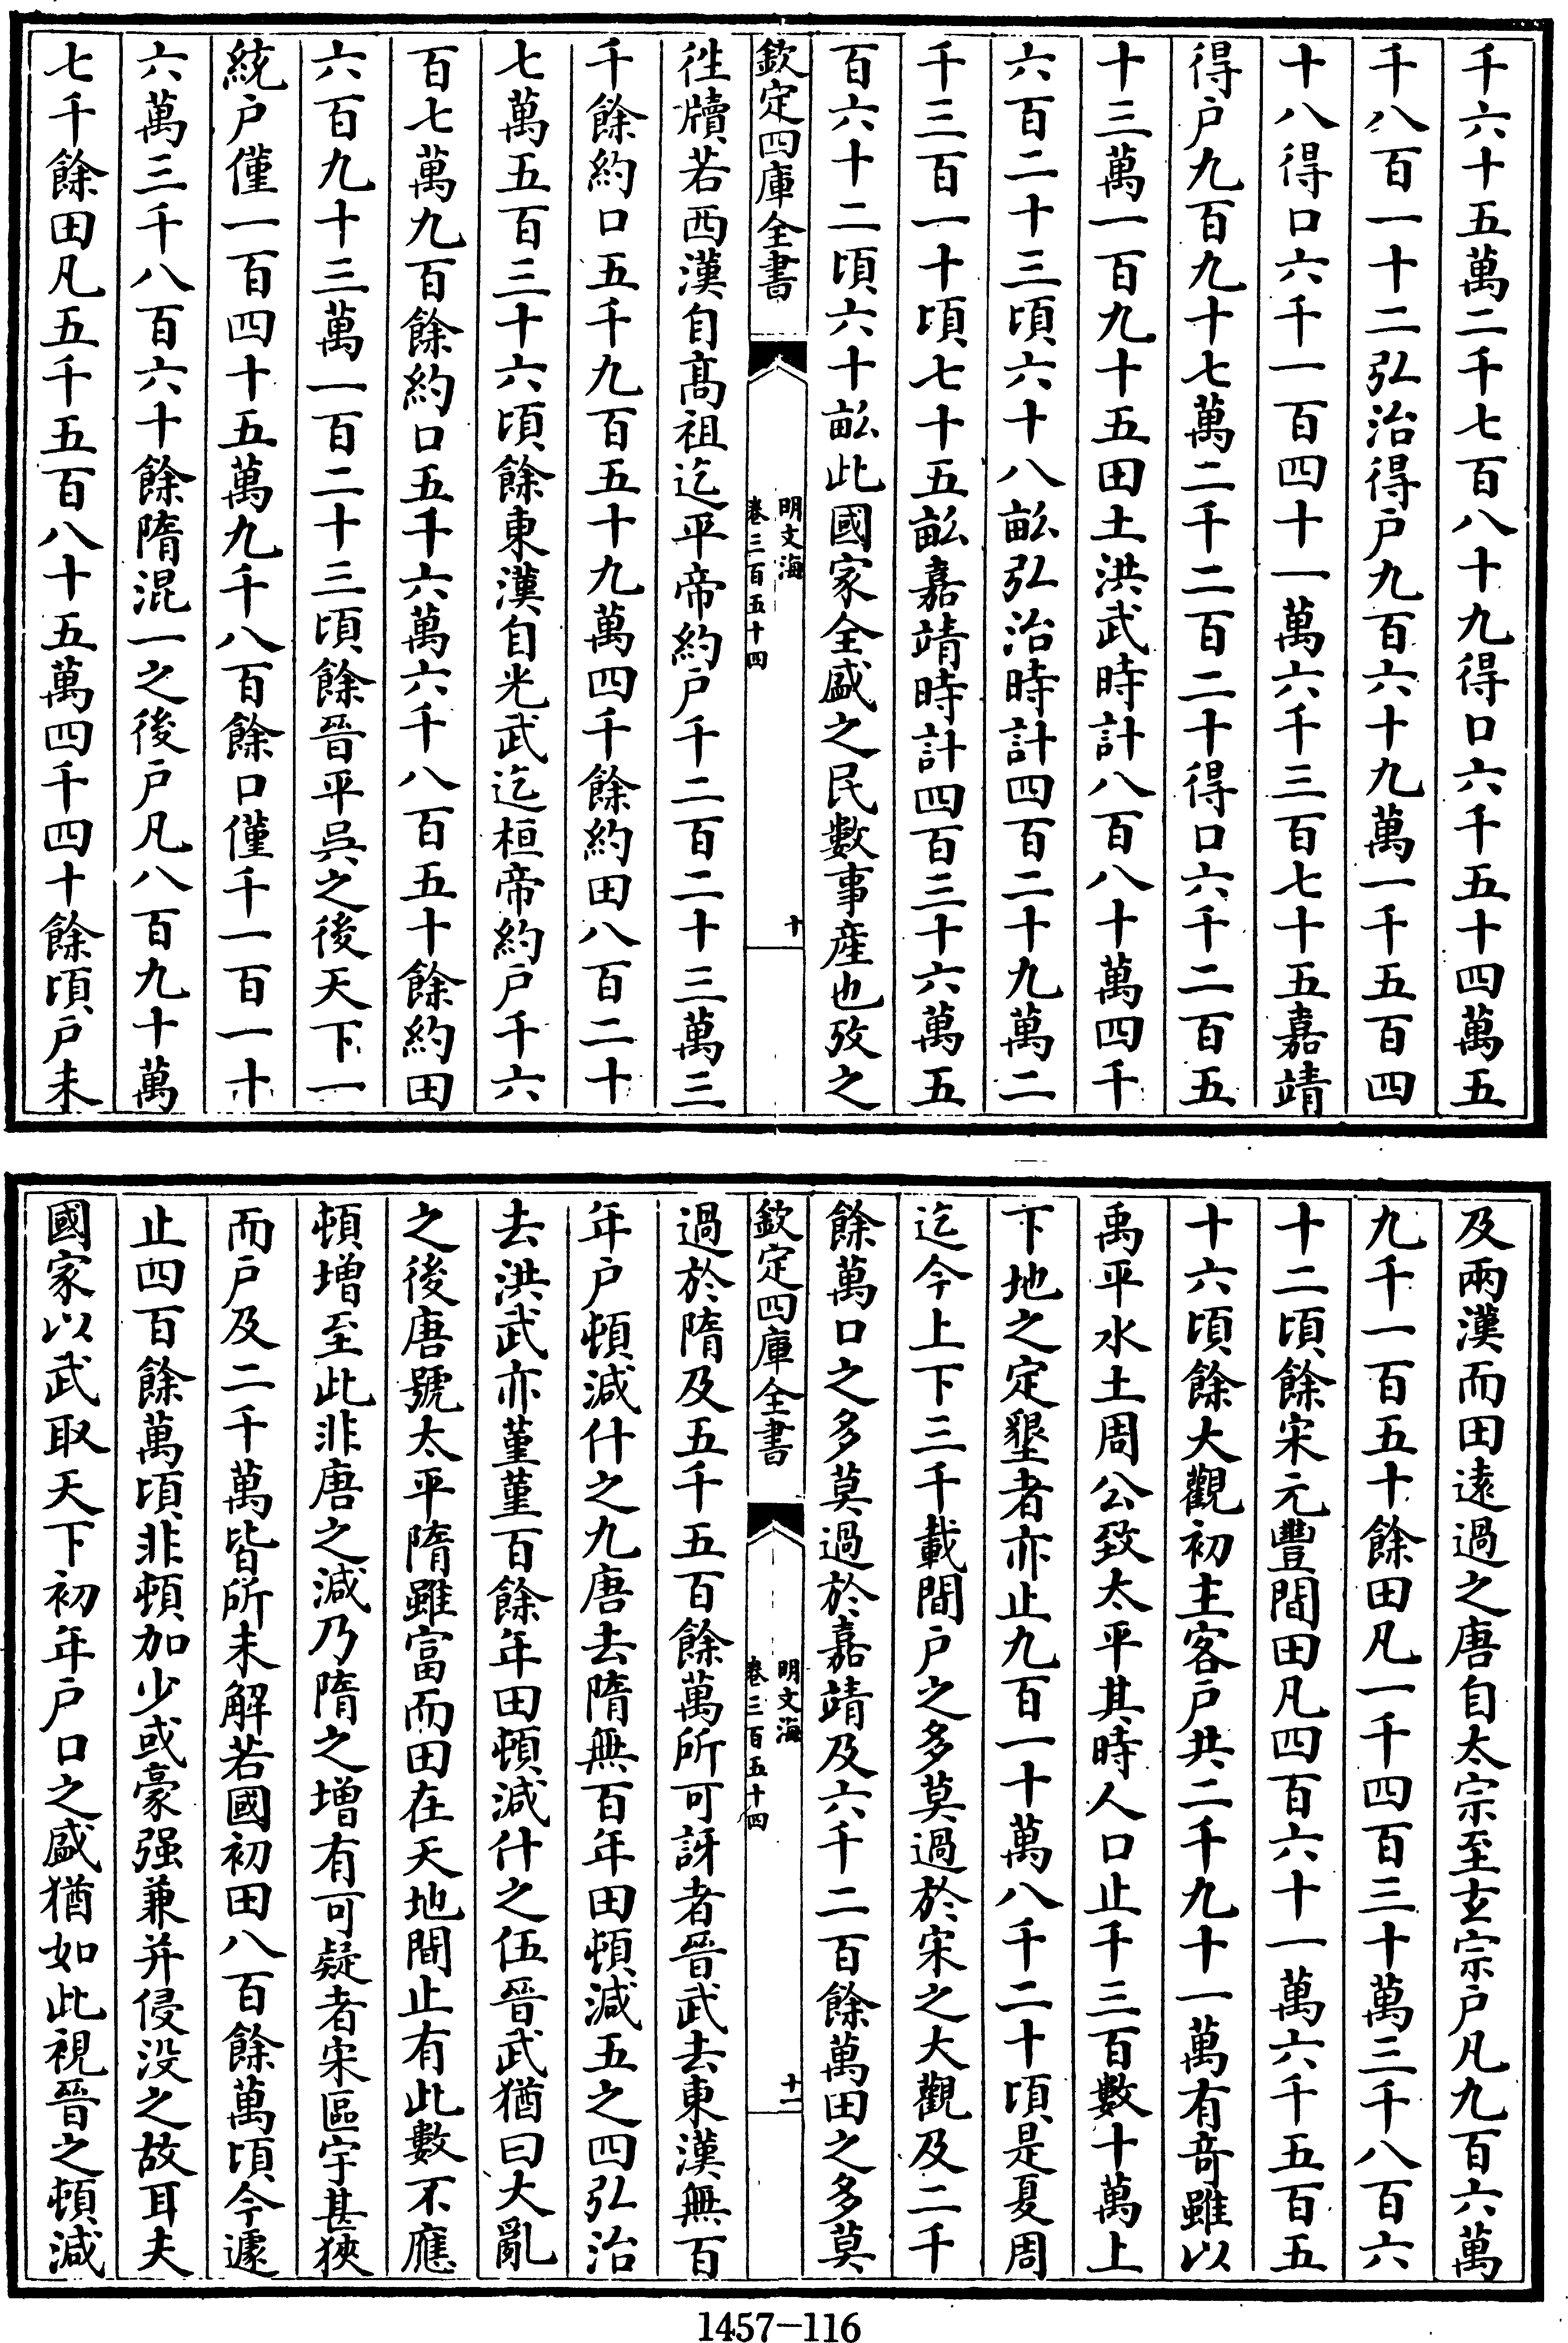 千六十五萬二千七百八十九得口六千五十四萬五
千八百一十二弘治得户九百六十九萬一千五百四
十八得口六千一百四十一萬六千三百七十五嘉靖
得户九百九十七萬二千二百二十得口六千二百五
十三萬一百九十五田土洪武時計八百八十萬四千
六百二十三頃六十八畝弘治時計四百二十九萬二
千三百一十頃七十五畝嘉靖時計四百三十六萬五
百六十二頃六十畝此國家全盛之民數事産也攷之
欽定四庫全書
明文海
卷三百五十四
十
徃牘若西漢自髙祖迄平帝約户千二百二十三萬三
千餘約口五千九百五十九萬四千餘約田八百二十
七萬五百三十六頃餘東漢自光武迄桓帝約户千六
百七萬九百餘約口五千六萬六千八百五十餘約田
六百九十三萬一百二十三頃餘晉平吳之後天下一
統户僅一百四十五萬九千八百餘口僅千一百一十
六萬三千八百六十餘隋混一之後户凡八百九十萬
七千餘田凡五千五百八十五萬四千四十餘頃户未
及兩漢而田遠過之唐自太宗至玄宗户凡九百六萬
九千一百五十餘田凡一千四百三十萬三千八百六
十二頃餘宋元豐間田凡四百六十一萬六千五百五
十六頃餘大觀初主客户共二千九十一萬有竒雖以
禹平水土周公致太平其時人口止千三百數十萬上
下地之定墾者亦止九百一十萬八千二十頃是夏周
迄今上下三千載間户之多莫過於宋之大觀及二千
餘萬口之多莫過於嘉靖及六千二百餘萬田之多莫
欽定四庫全書
明文海
卷三百五十四
十一
過於隋及五千五百餘萬所可訝者晉武去東漢無百
年户頓減什之九唐去隋無百年田頓減五之四弘治
去洪武亦堇堇百餘年田頓減什之伍晉武猶曰大亂
之後唐號太平隋雖富而田在天地間止有此數不應
頓增至此非唐之減乃隋之增有可疑者宋區宇甚狹
而户及二千萬皆所未解若國初田八百餘萬頃今遽
止四百餘萬頃非頓加少或豪强兼并侵没之故耳夫
國家以武取天下初年户口之盛猶如此視晉之頓減
1457—116